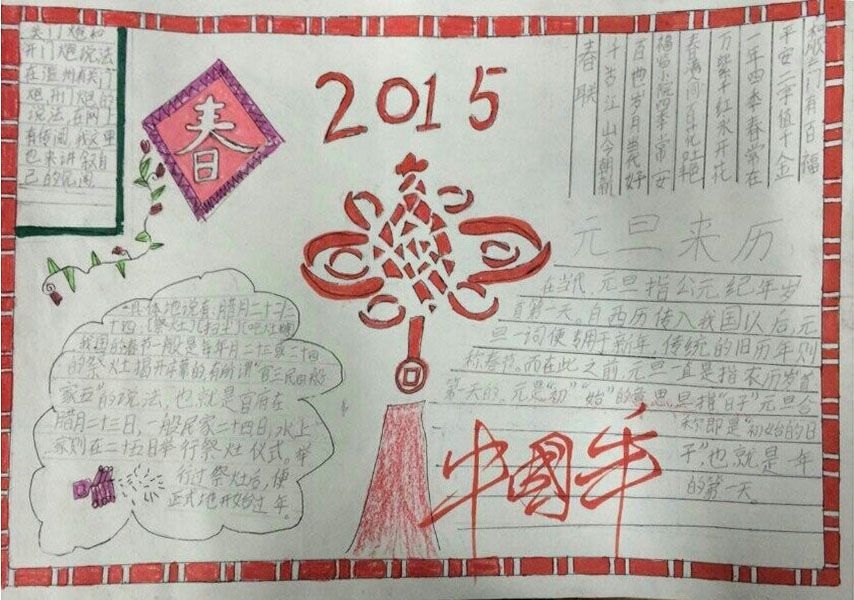 关门炮和
开门炮说法
在温州有关门
炮、开门炮的
说法,在网上
有传闻,我这里
也来讲叙自
己的见闻
春
2015
和顺一门有百福
平安二字值千金
一年四季春常在
万紫千红永开花
春满人间百花吐艳
福临小院四季常安
百世岁月当代好
千古江山今朝新
春联
元旦来历
在当代,元旦指公元纪年岁
首第一天。自西历传入我国以后,元
旦一词便专用于新年,传统的旧历年则
称春节。而在此之前,元旦一直是指农历岁首
第一天的。元是"初""始"的意思,旦指"日子"元旦合
称即是"初始的日
子",也就是一年
的第一天。
具体地说有:腊月二十三/二
十四、(祭灶)(扫尘)(吃灶糖)
我国的春节一般是每年月二十三或二十四
的祭灶揭开序幕的,有所谓"官三民四船
家五"的说法,也就是官府在
腊月二十三日,一般民家二十四日,水上
家则在二十五日举行祭灶仪式。举
行过祭灶后,便
正式地开始过年。
中国年